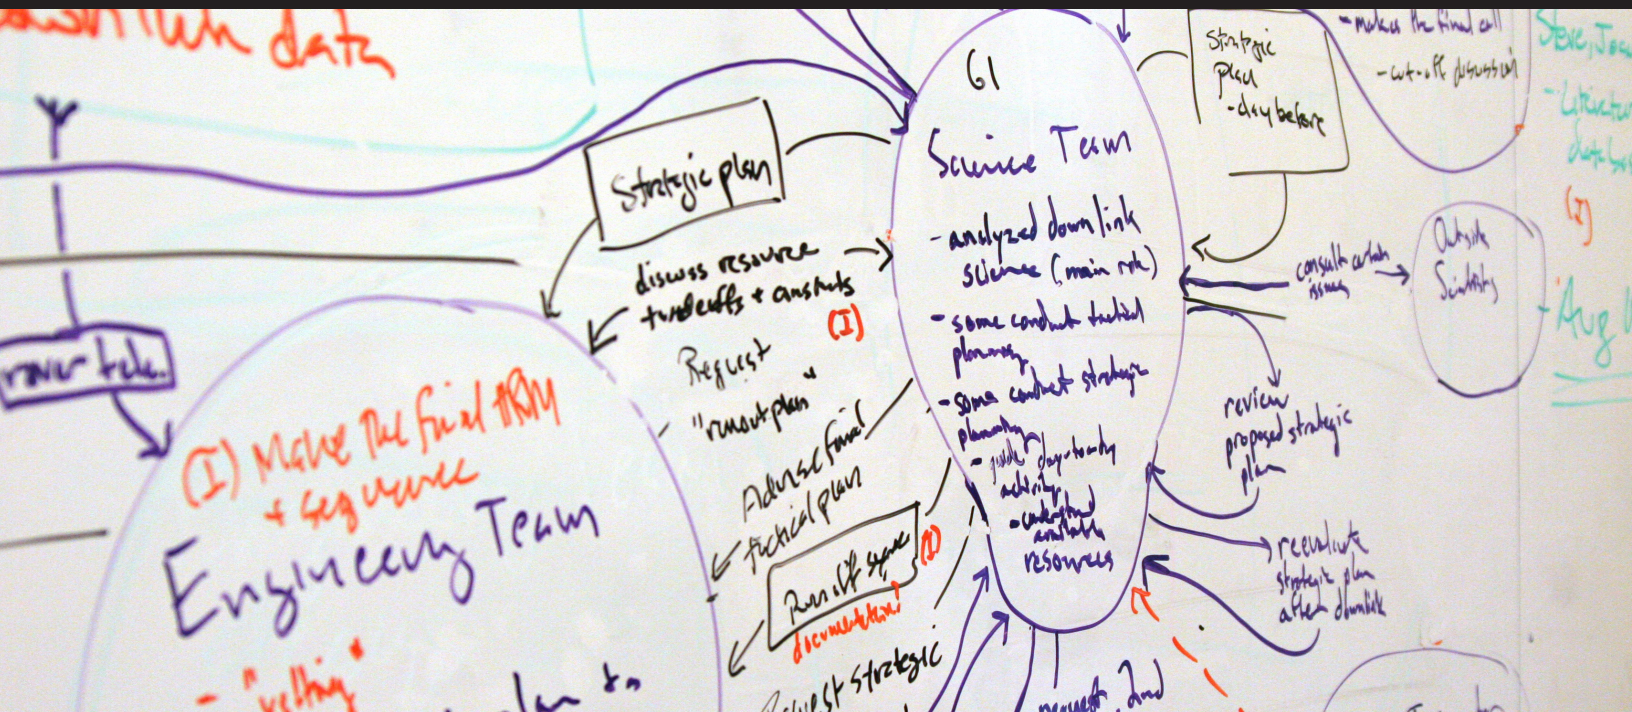 downlink data
rover tele.
(I) Make the final
+ sequence
Engineering Team
- "vetting"
plan to
Strategic plan
discuss resource
tradeoffs + constraints
(I)
Request
"runout plan"
Advise final
tactical plan
(I)
documentation!
Request strategic
G1
Science Team
- analyzed downlink
science (main role)
- some conduct tactical
planning
- some conduct strategic
planning
- guide day-to-day
activity
- understand
available
resources
request 2nd
Strategic
plan
- day before
- makes the final call
- cut-off discussion
consult certain
issues
Outside
Scientists
review
proposed strategic
plan
reevaluate
strategic plan
after downlink
Steve,
- Literature
databases
(I)
- Aug